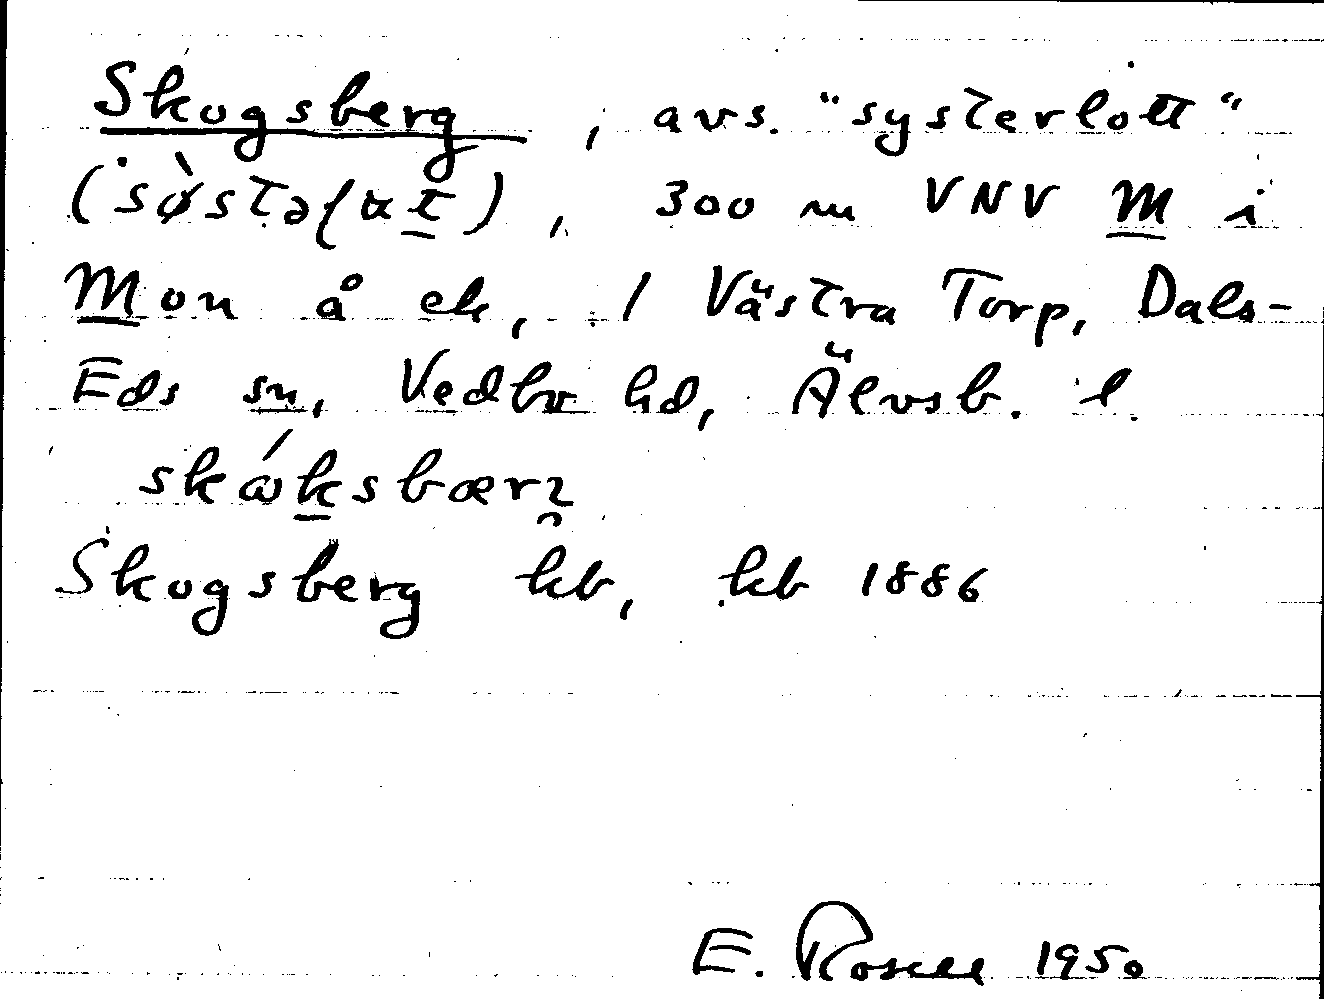 Skogsberg, avs. "systerlott"
(sø̀stəɭαt̲), 300 m VNV M i
Mon å ek, 1 Västra Torp, Dals-
Eds sn, Vedbo hd, Älvsb. l.
skáksbærʒ
Skogsberg hb, kb 1886
E. Rosell 1950